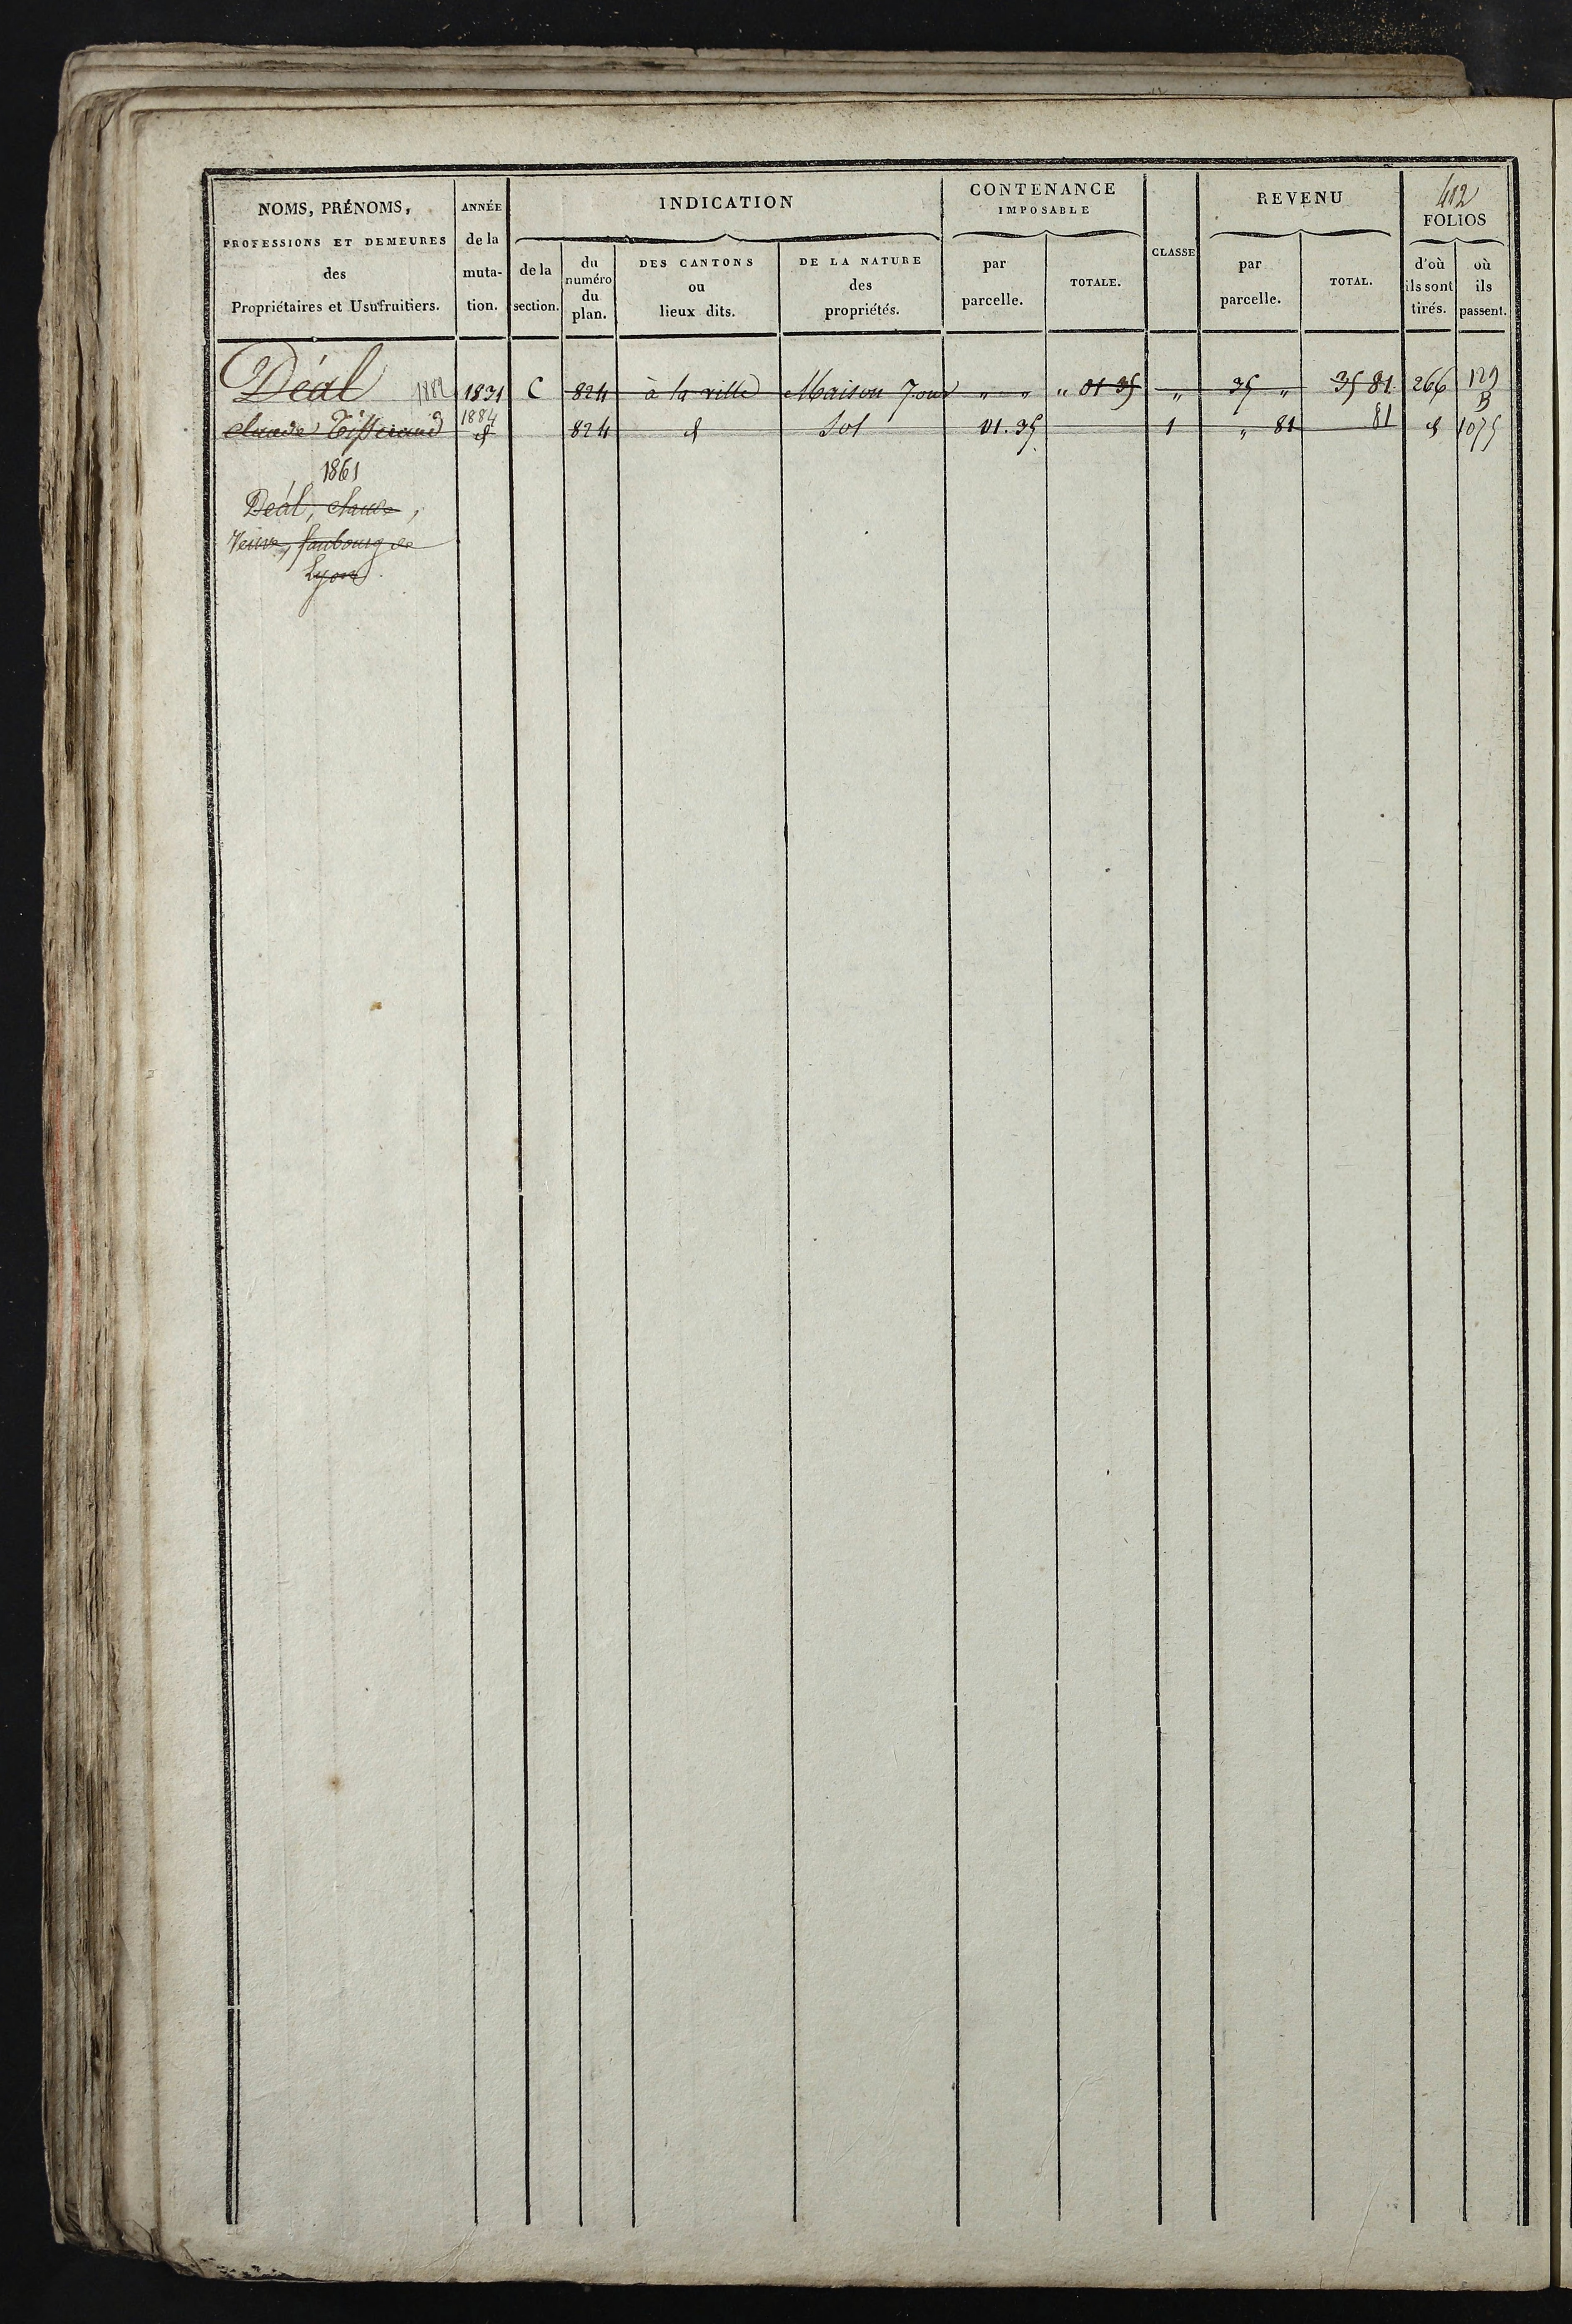 412
NOMS, PRÉNOMS, PROFESSIONS ET DEMEURES des Propriétaires et Usufruitiers.
ANNÉE de la muta-tion.
INDICATION
de la section.
du numéro du plan.
DES CANTONS ou lieux dits.
DE LA NATURE des propriétés.
CONTENANCE IMPOSABLE
par parcelle.
TOTALE.
CLASSE
REVENU
par parcelle.
TOTAL.
FOLIOS
d'où ils sont tirés.
où ils passent.
Déal 1882 1831 C 824 à la ville Maison 7 ouv " " " 01 35 " 35 " 35 81 266 129 B
claude Tisserand 1884 d 824 d Sol 01.35 1 " 81 81 d 1075
1861
Déal, claude,
Veuve, faubourg de
Lyon.